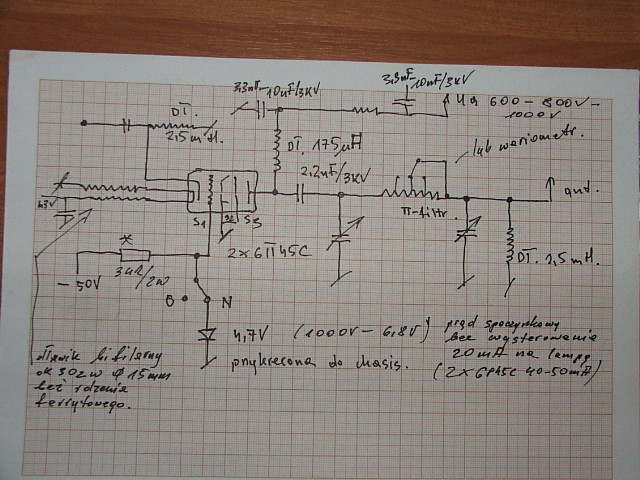 3,3nF-10nF/3KV
3,3nF-10nF/3KV
Ua 600-800V-
1000V
DŁ.
2,5mH
DŁ. 175µH
lub wariometr.
2,2nF/3KV
6,3V
S1
S2
S3
π-filtr.
ant.
2x6П45C
DŁ. 2,5mH.
*
3kΩ/2W
-50V
O
N
4,7V (1000V-6,8V)
przykręcona do chasis.
prąd spoczynkowy
bez wysterowania
20mA na lampę
(2x6P45C 40-50mA)
dławik bifilarny
ok 30zw Φ 15mm
bez rdzenia
ferrytowego.